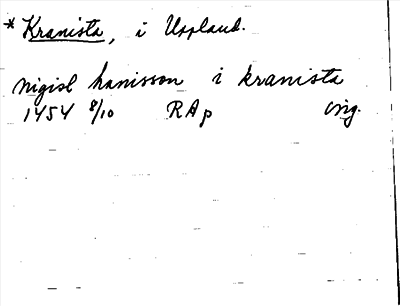 * Kranista, i Uppland.
nigisl hanisson i kranista
1454 8/10 RAp orig.